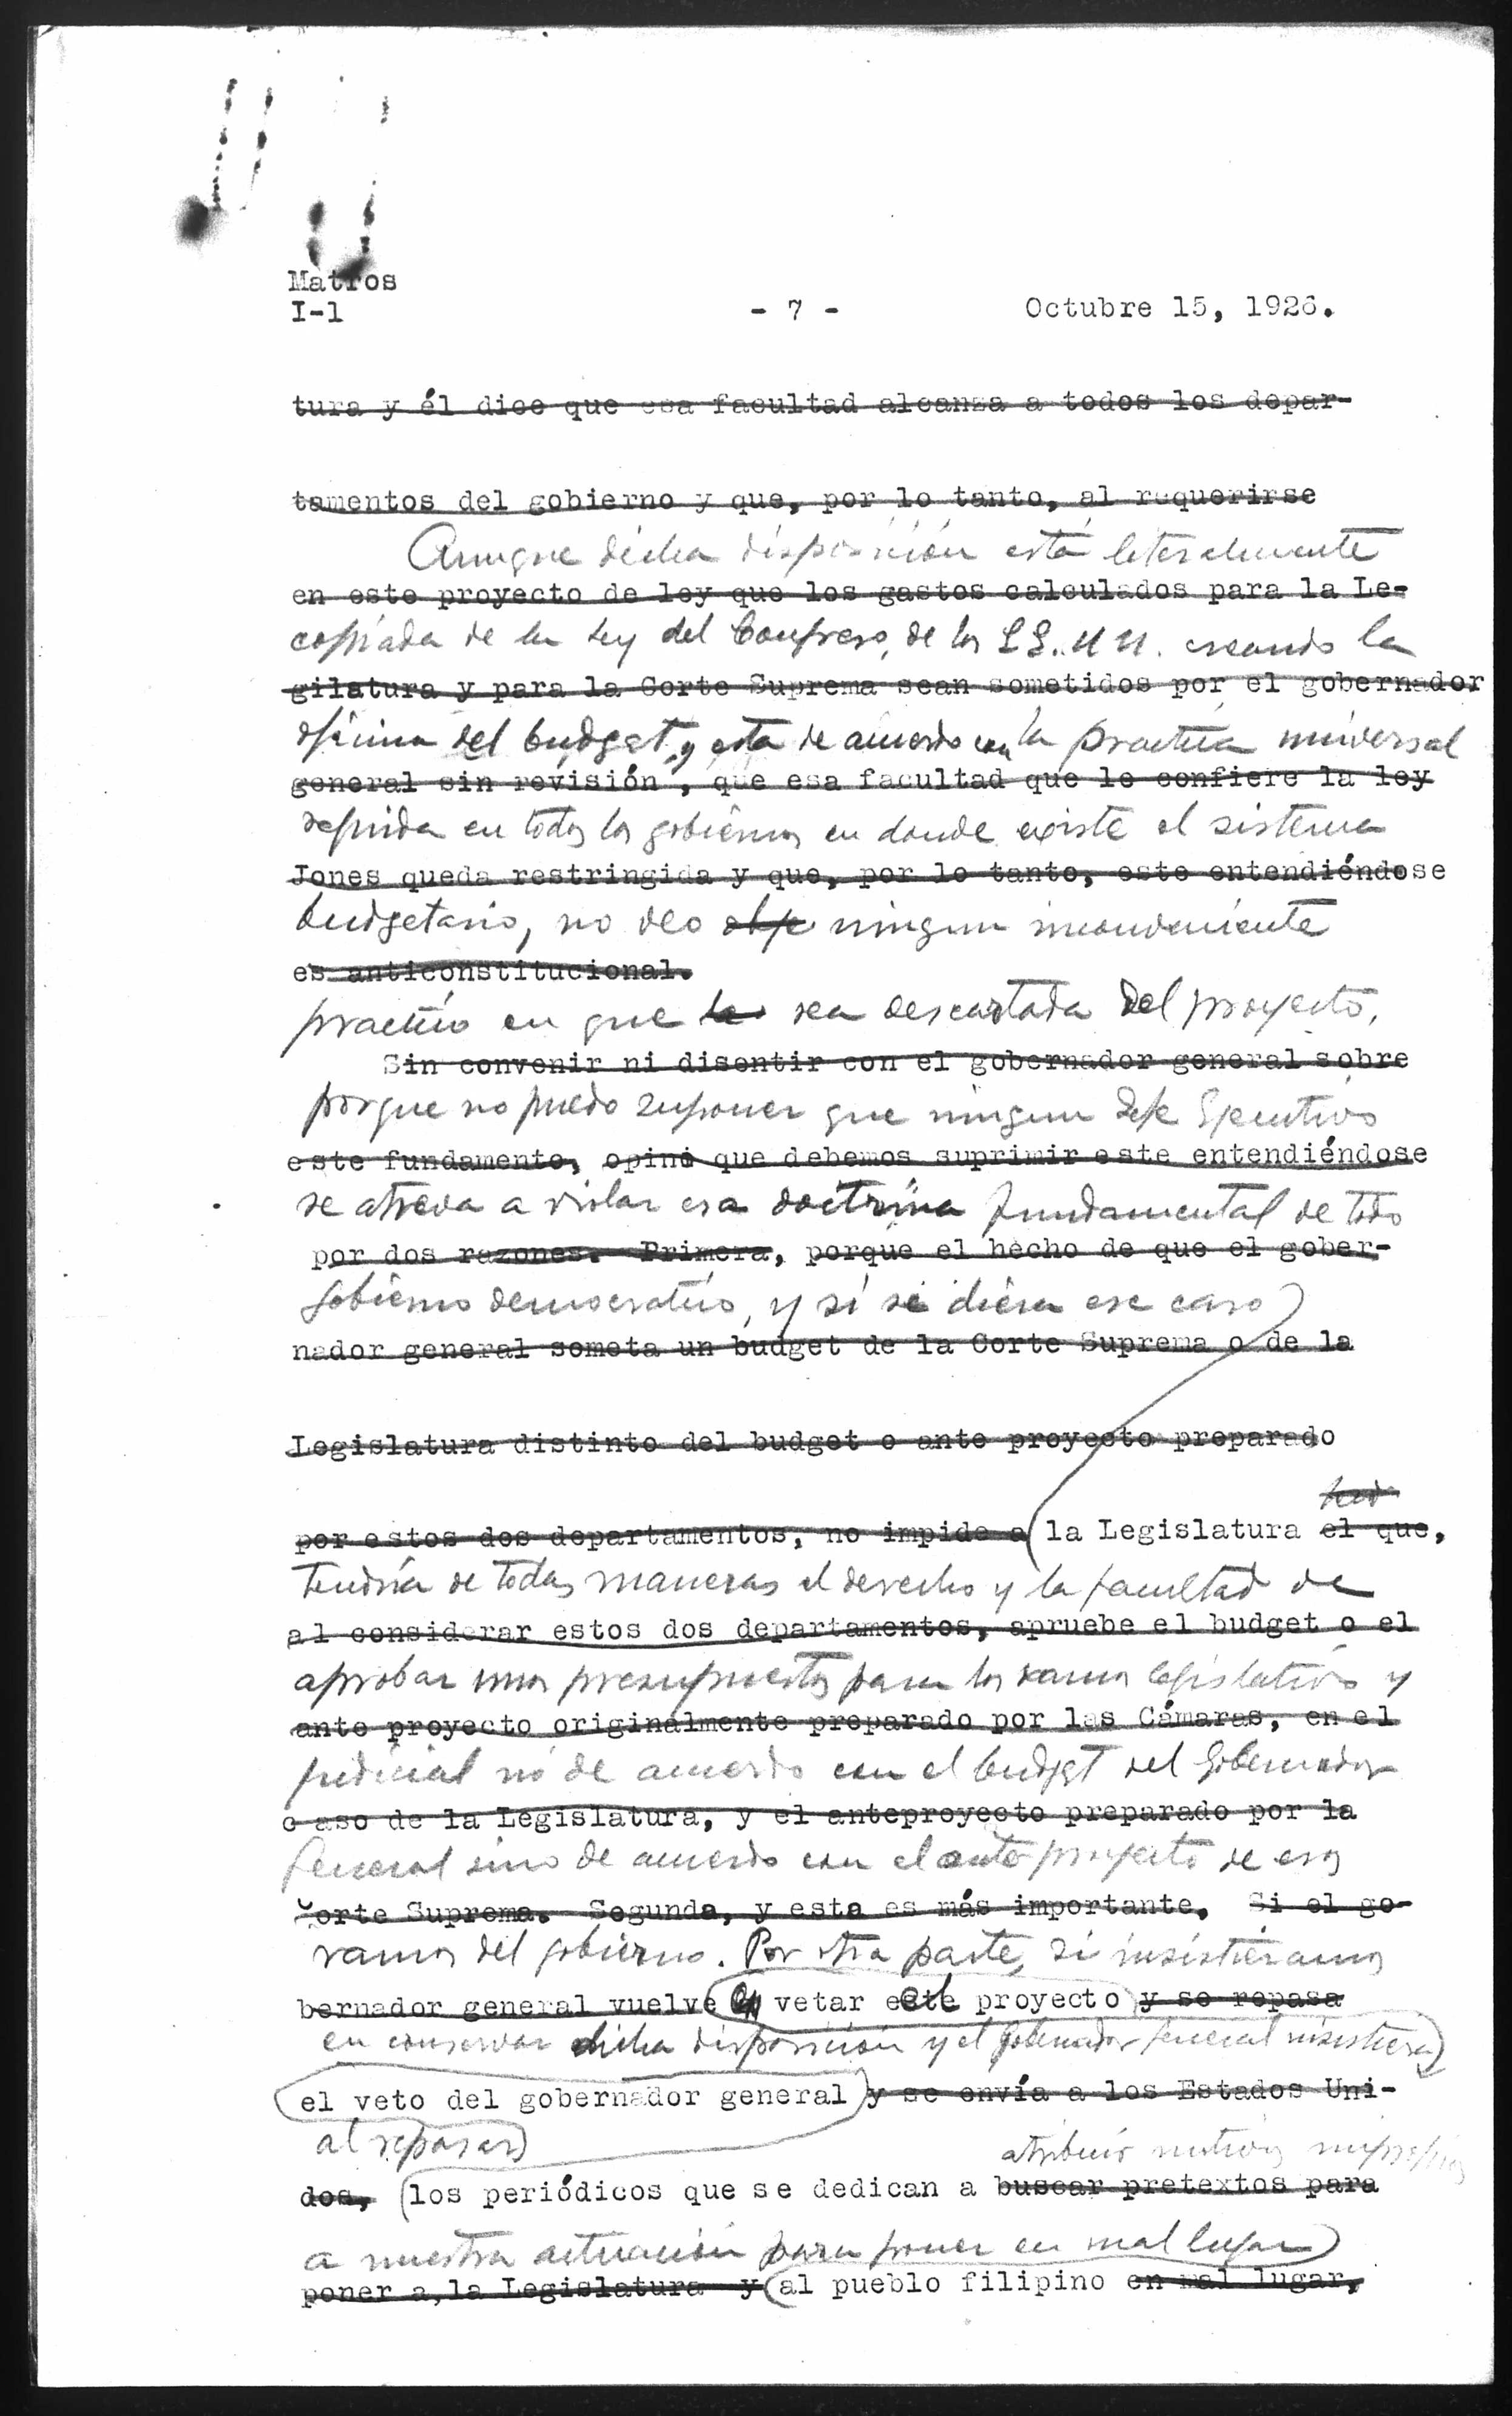 Matros
I-1
- 7 -
Octubre 15, 1926.
tura y él dice que esa facultad alcanza a todos los depar-
tamentos del gobierno y que, por lo tanto, al requerirse
Aunque dicha disposición está literalmente
en este proyecto de ley que los gastos calculados para la Le-
copiada de la Ley del Congreso, de los EE. UU. creando la
gilatura y para la Corte Suprema sean sometidos por el gobernador
oficina del budget, y esta de acuerdo con la practica universal
general sin revisión, que esa facultad que le confiere la ley
seguida en todos los gobiernos en donde existe el sistema
Jones queda restringida y que, por lo tanto, este entendiéndose
budgetario, no veo ningun inconveniente
es anticonstitucional.
practico en que la sea descartada del proyecto,
Sin convenir ni disentir con el gobernador general sobre
porque no puedo suponer que ningun Jefe Ejecutivo
este fundamento, opino que debemos suprimir este entendiéndose
se atreva a violar esa doctrina fundamental de todo
por dos razones. Primera, porque el hecho de que el gober-
gobierno democratico, y si se diera ese caso
nador general someta un budget de la Corte Suprema o de la
Legislatura distinto del budget o ante proyecto preparado
por estos dos departamentos, no impide a la Legislatura el que,
tendria de todas maneras el derecho y la facultad de
al considerar estos dos departamentos, apruebe el budget o el
aprobar unos presupuestos para los ramos legislativo y
ante proyecto originalmente preparado por las Cámaras, en el
judicial no de acuerdo con el budget del Gobernador
caso de la Legislatura, y el anteproyecto preparado por la
General sino de acuerdo con el ante proyecto de esos
Corte Suprema. Segunda, y esta es más importante. Si el go-
ramos del gobierno. Por otra parte, si insistieramos
bernador general vuelve en vetar el proyecto y se repasa
en conservar dicha disposición y el Gobernador General insistiera
el veto del gobernador general y se envía a los Estados Uni-
al repasar
atribuir motivos
dos, los periódicos que se dedican a buscar pretextos para
a nuestra actuacion para poner en mal lugar
poner a la Legislatura y al pueblo filipino en mal lugar,